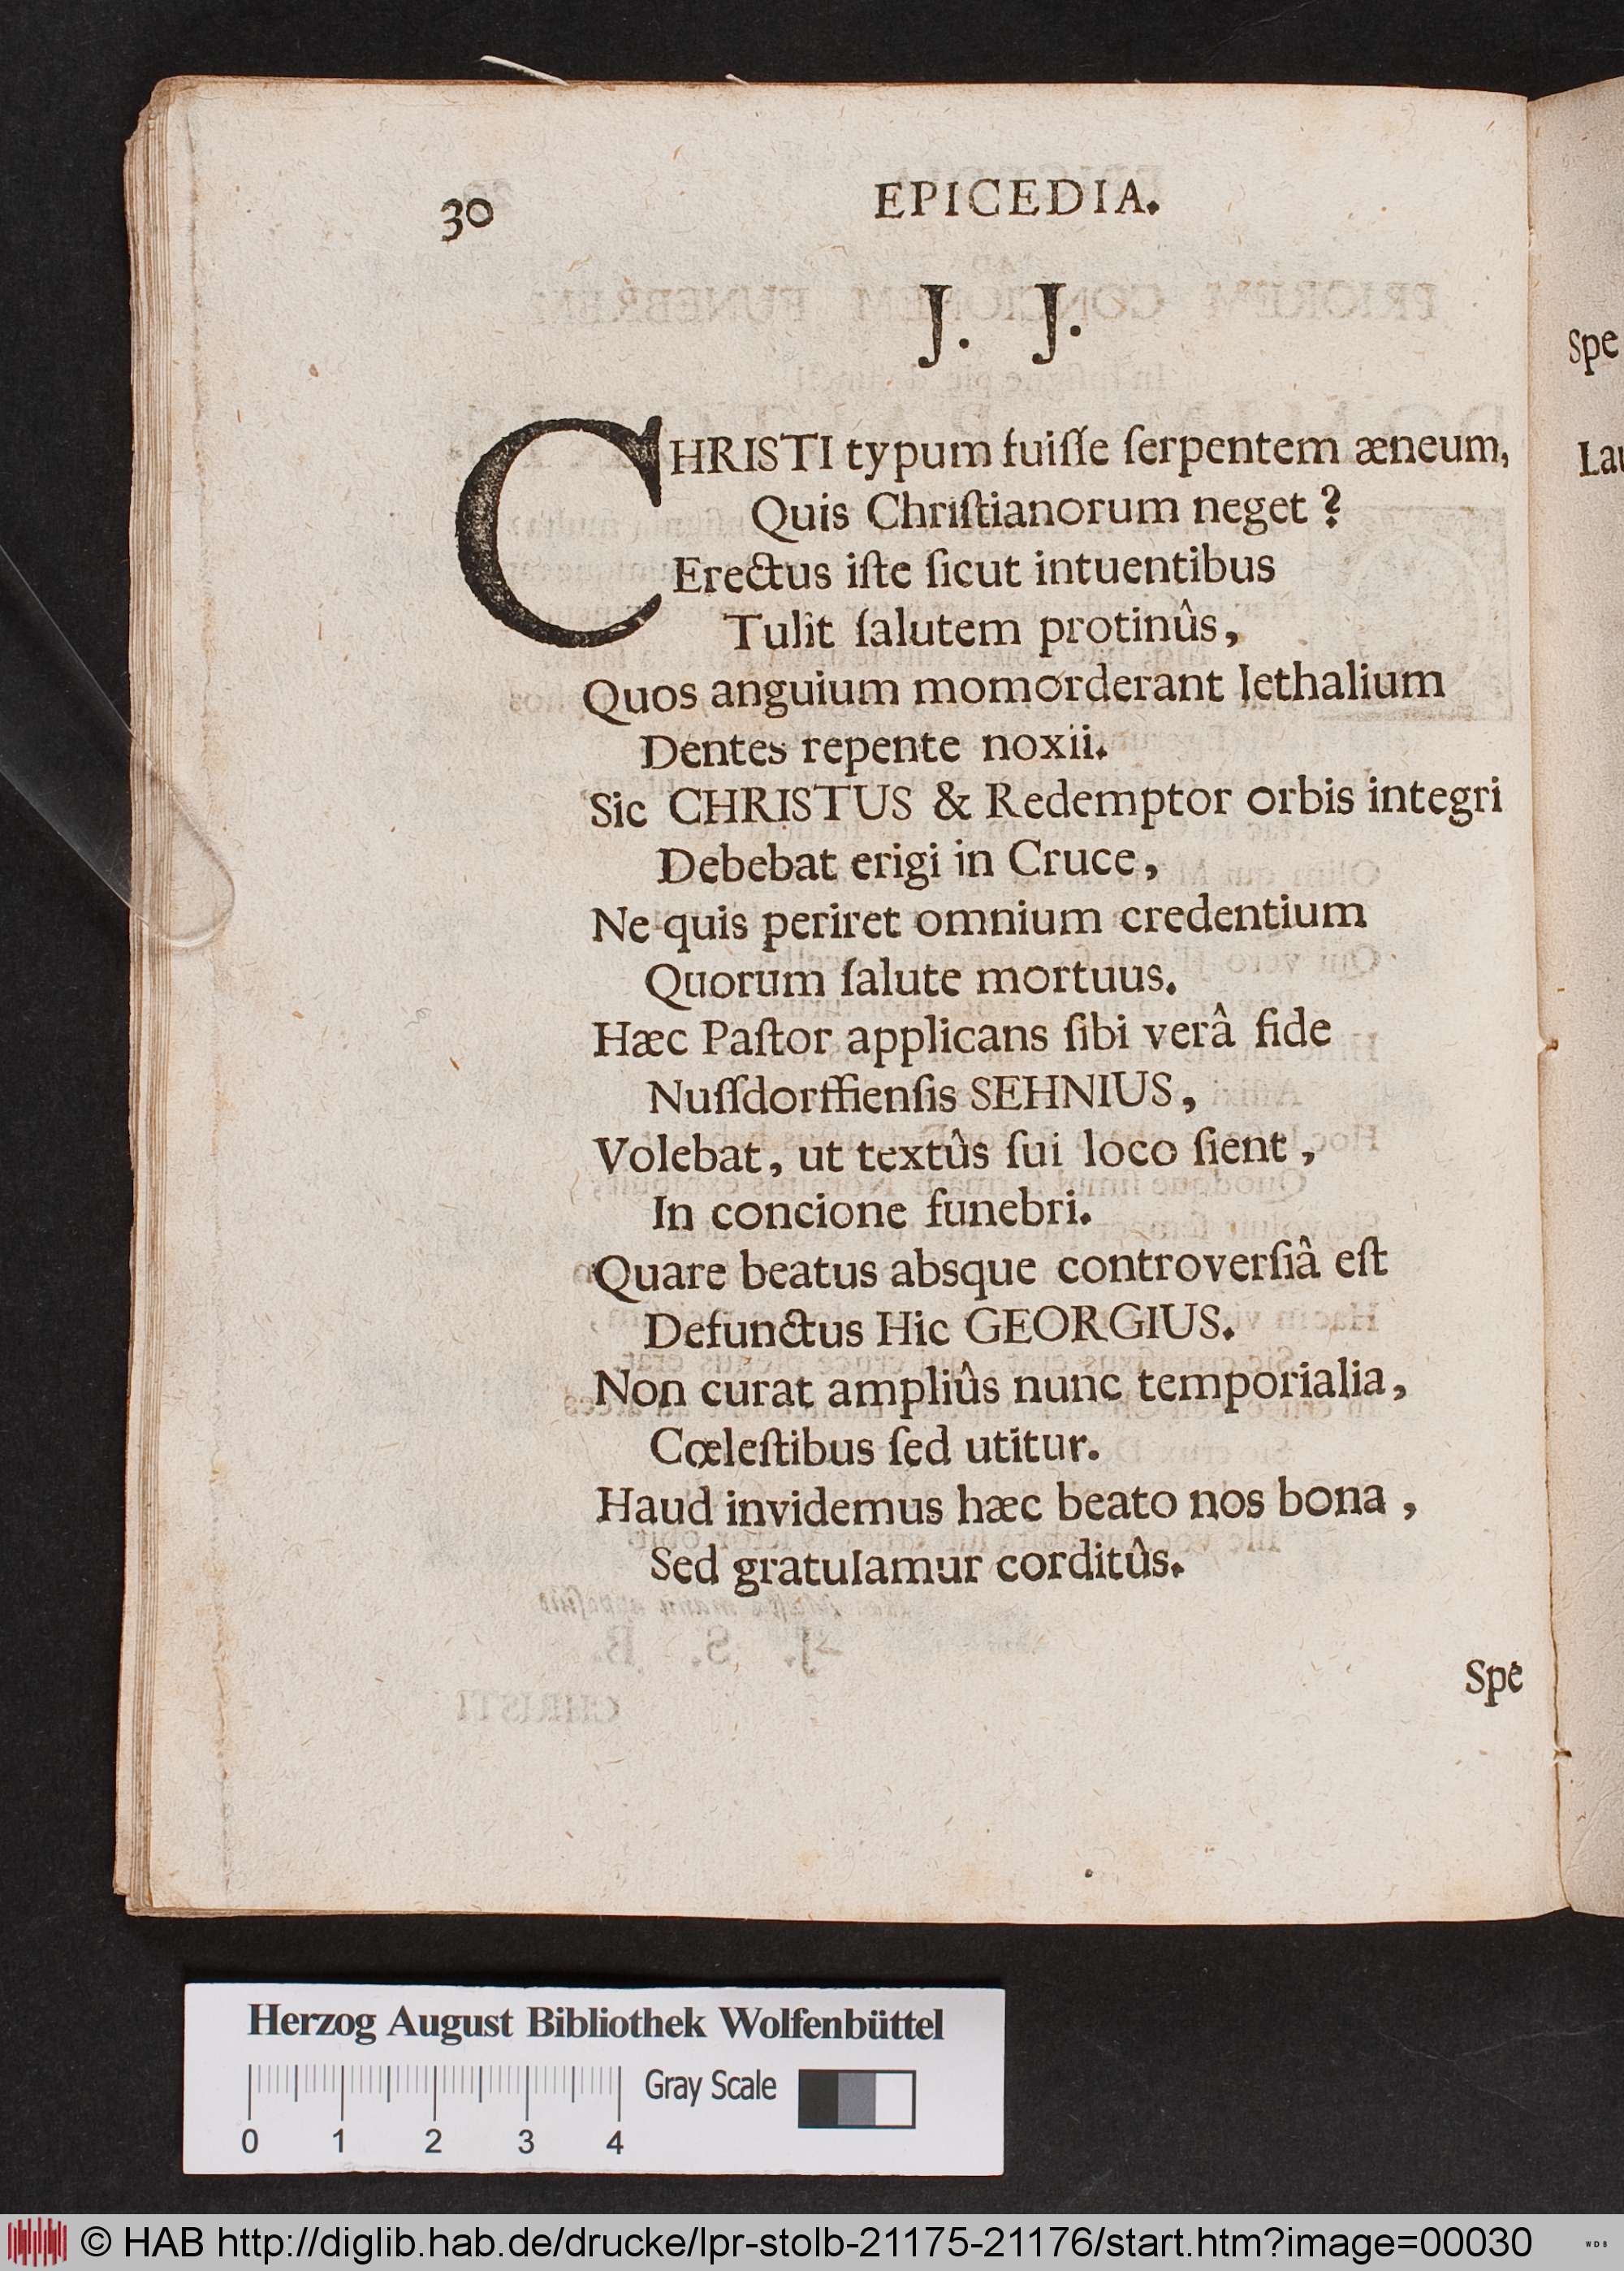 30 EPICEDIA.
J. J.
CHRISTI typum fuiſſe ſerpentem æneum,
Quis Chriſtianorum neget?
Erectus iſte ſicut intuentibus
Tulit ſalutem protinûs,
Quos anguium momorderant lethalium
Dentes repente noxii.
Sic CHRISTUS & Redemptor orbis integri
Debebat erigi in Cruce,
Ne quis periret omnium credentium
Quorum ſalute mortuus.
Hæc Paſtor applicans ſibi verâ fide
Nuſſdorffienſis SEHNIUS,
Volebat, ut textûs ſui loco ſient,
In concione funebri.
Quare beatus absque controverſiâ eſt
Defunctus Hic GEORGIUS.
Non curat ampliûs nunc temporialia,
Cœleſtibus ſed utitur.
Haud invidemus hæc beato nos bona,
Sed gratulamur corditûs.
Spe
Spe
Lau
Herzog August Bibliothek Wolfenbüttel
Gray Scale
0 1 2 3 4
© HAB http://diglib.hab.de/drucke/lpr-stolb-21175-21176/start.htm?image=00030
WDB